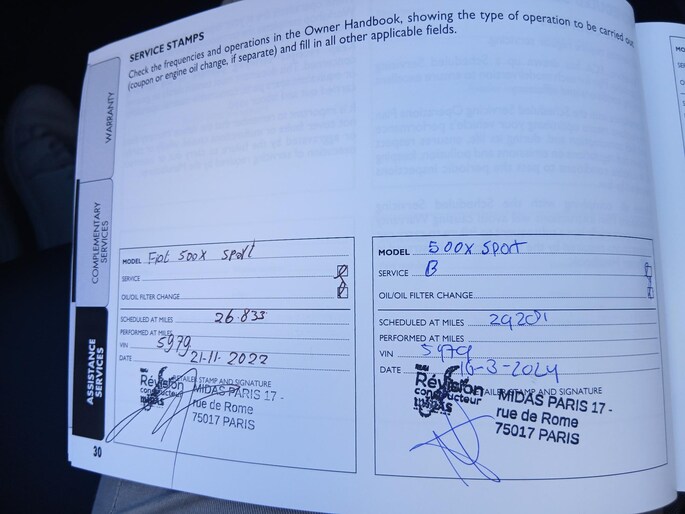 SERVICE STAMPS
Check the frequencies and operations in the Owner Handbook, showing the type of operation to be carried out
(coupon or engine oil change, if separate) and fill in all other applicable fields.
WARRANTY
COMPLEMENTARY
SERVICES
ASSISTANCE
SERVICES
MODEL Fiat 500X Sport
SERVICE
OIL/OIL FILTER CHANGE
SCHEDULED AT MILES 26.833
PERFORMED AT MILES
VIN 5979
DATE 21-11-2022
STAMP AND SIGNATURE
Révision
constructeur
MIDAS PARIS 17 -
rue de Rome
75017 PARIS
MODEL 500X Sport
SERVICE B
OIL/OIL FILTER CHANGE
SCHEDULED AT MILES
PERFORMED AT MILES
VIN 5979
DATE 16-3-2024
STAMP AND SIGNATURE
Révision
constructeur
MIDAS PARIS 17 -
rue de Rome
75017 PARIS
30